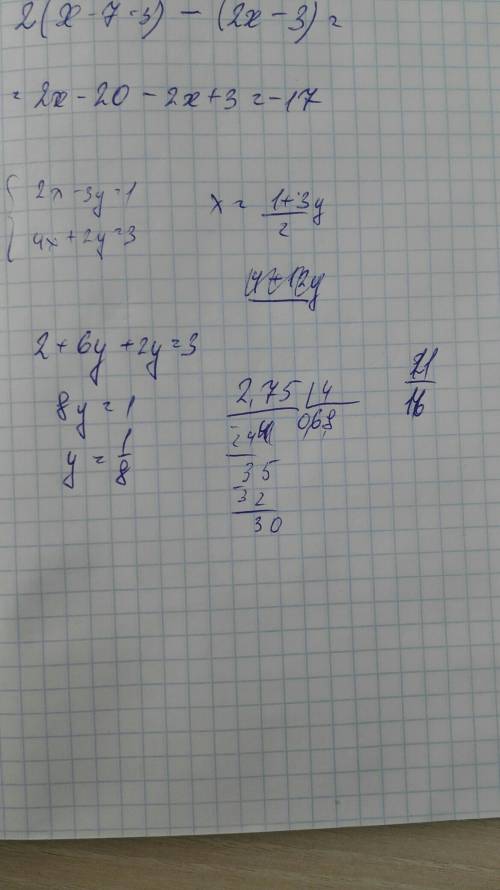 2(x-7-3) - (2x-3) =
= 2x-20-2x+3=-17
2x-3y=1
4x+2y=3
x = (1+3y)/2
2+6y+2y=3
8y=1
y=1/8
2,75 | 4
0,68
24
35
32
30
21/16